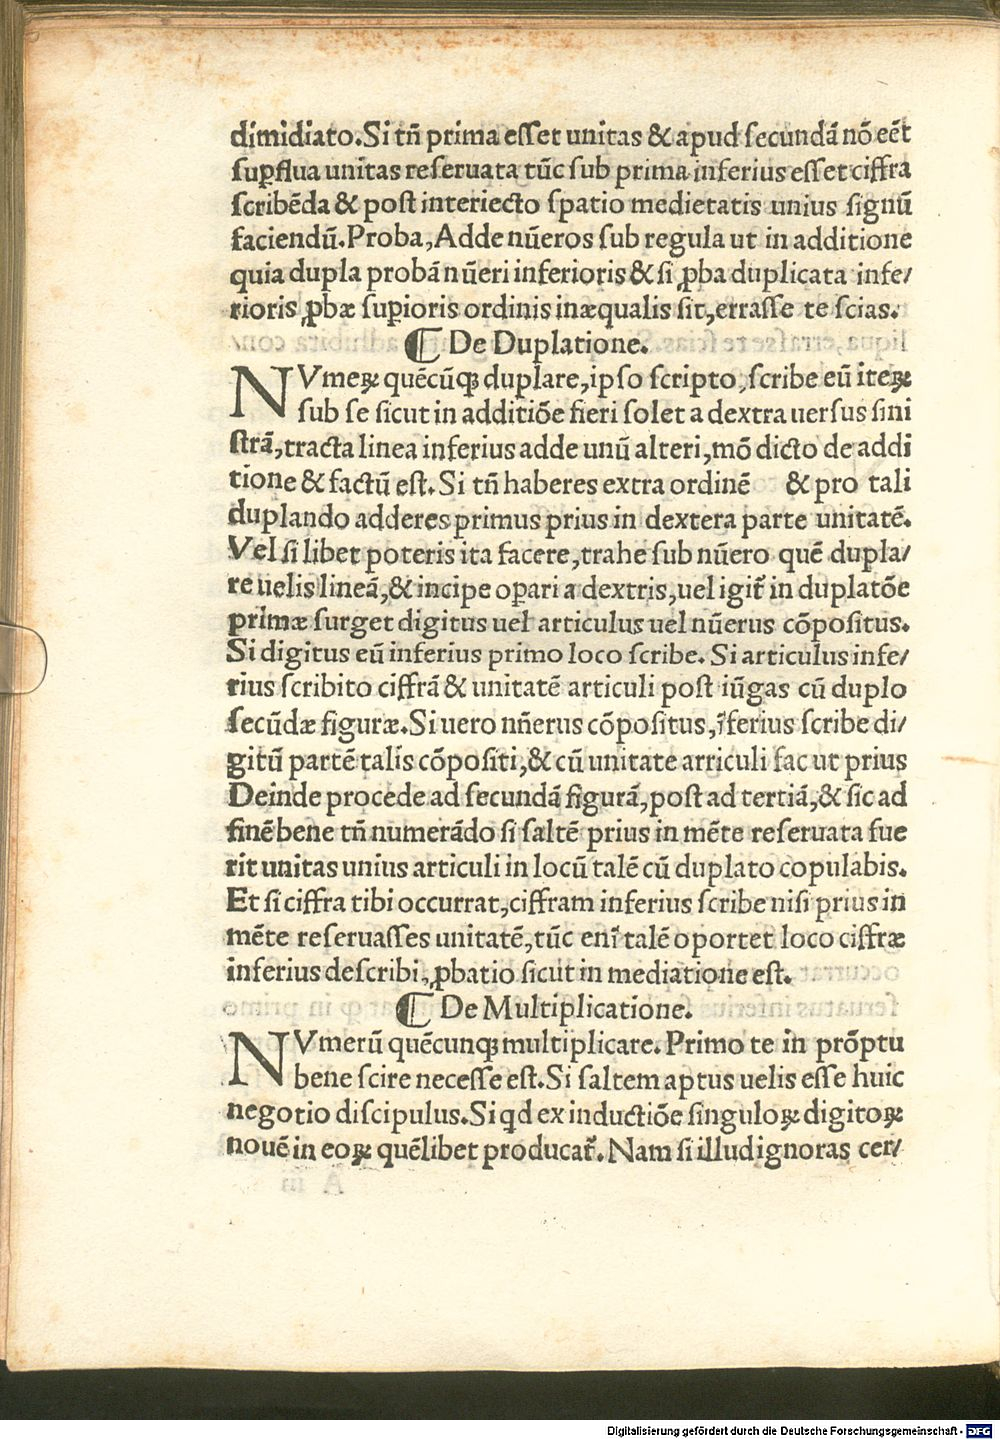 dimidiato.Si tñ prima eſſet unitas & apud ſecundā nō eēt
ſuꝑflua unitas reſeruata tūc ſub prima inferius eſſet ciffra
ſcribēda & poſt interiecto ſpatio medietatis unius ſignū
faciendū.Proba,Adde nūeros ſub regula ut in additione
quia dupla probā nūeri inferioris & ſi ꝓba duplicata infe/
rioris ꝓbæ ſuꝑioris ordinis inæqualis ſit,erraſſe te ſcias.
⁋ De Duplatione.
NVmeꝝ quēcūqꝫ duplare,ipſo ſcripto,ſcribe eū iteꝝ
ſub ſe ſicut in additiōe fieri ſolet a dextra uerſus ſini
ſtrā,tracta linea inferius adde unū alteri,mō dicto de addi
tione & factū eſt.Si tñ haberes extra ordinē & pro tali
duplando adderes primus prius in dextera parte unitatē.
Vel ſi libet poteris ita facere,trahe ſub nūero quē dupla/
re uelis lineā,& incipe oꝑari a dextris,uel igit̃ in duplatōe
primæ ſurget digitus uel articulus uel nūerus cōpoſitus.
Si digitus eū inferius primo loco ſcribe. Si articulus infe/
rius ſcribito ciffrā & unitatē articuli poſt iūgas cū duplo
ſecūdæ figuræ.Si uero nñerus cōpoſitus,ĩferius ſcribe di/
gitū partē talis cōpoſiti,& cū unitate arriculi fac ut prius
Deinde procede ad ſecundā figurā,poſt ad tertiā,& ſic ad
finē bene tñ numerādo ſi ſaltē prius in mēte reſeruata fue
rit unitas unius articuli in locū talē cū duplato copulabis.
Et ſi ciffra tibi occurrat,ciffram inferius ſcribe niſi prius in
mēte reſeruaſſes unitatē,tūc enĩ talē oportet loco ciffræ
inferius deſcribi,ꝓbatio ſicut in mediatione eſt.
⁋ De Multiplicatione.
NVmerū quēcunqꝫ multiplicare.Primo te in prōptu
bene ſcire neceſſe eſt.Si ſaltem aptus uelis eſſe huic
negotio diſcipulus.Si qd ex inductiōe ſinguloꝝ digitoꝝ
nouē in eoꝝ quēlibet producat̃.Nam ſi illud ignoras cer/
Digitalisierung gefördert durch die Deutsche Forschungsgemeinschaft - DFG